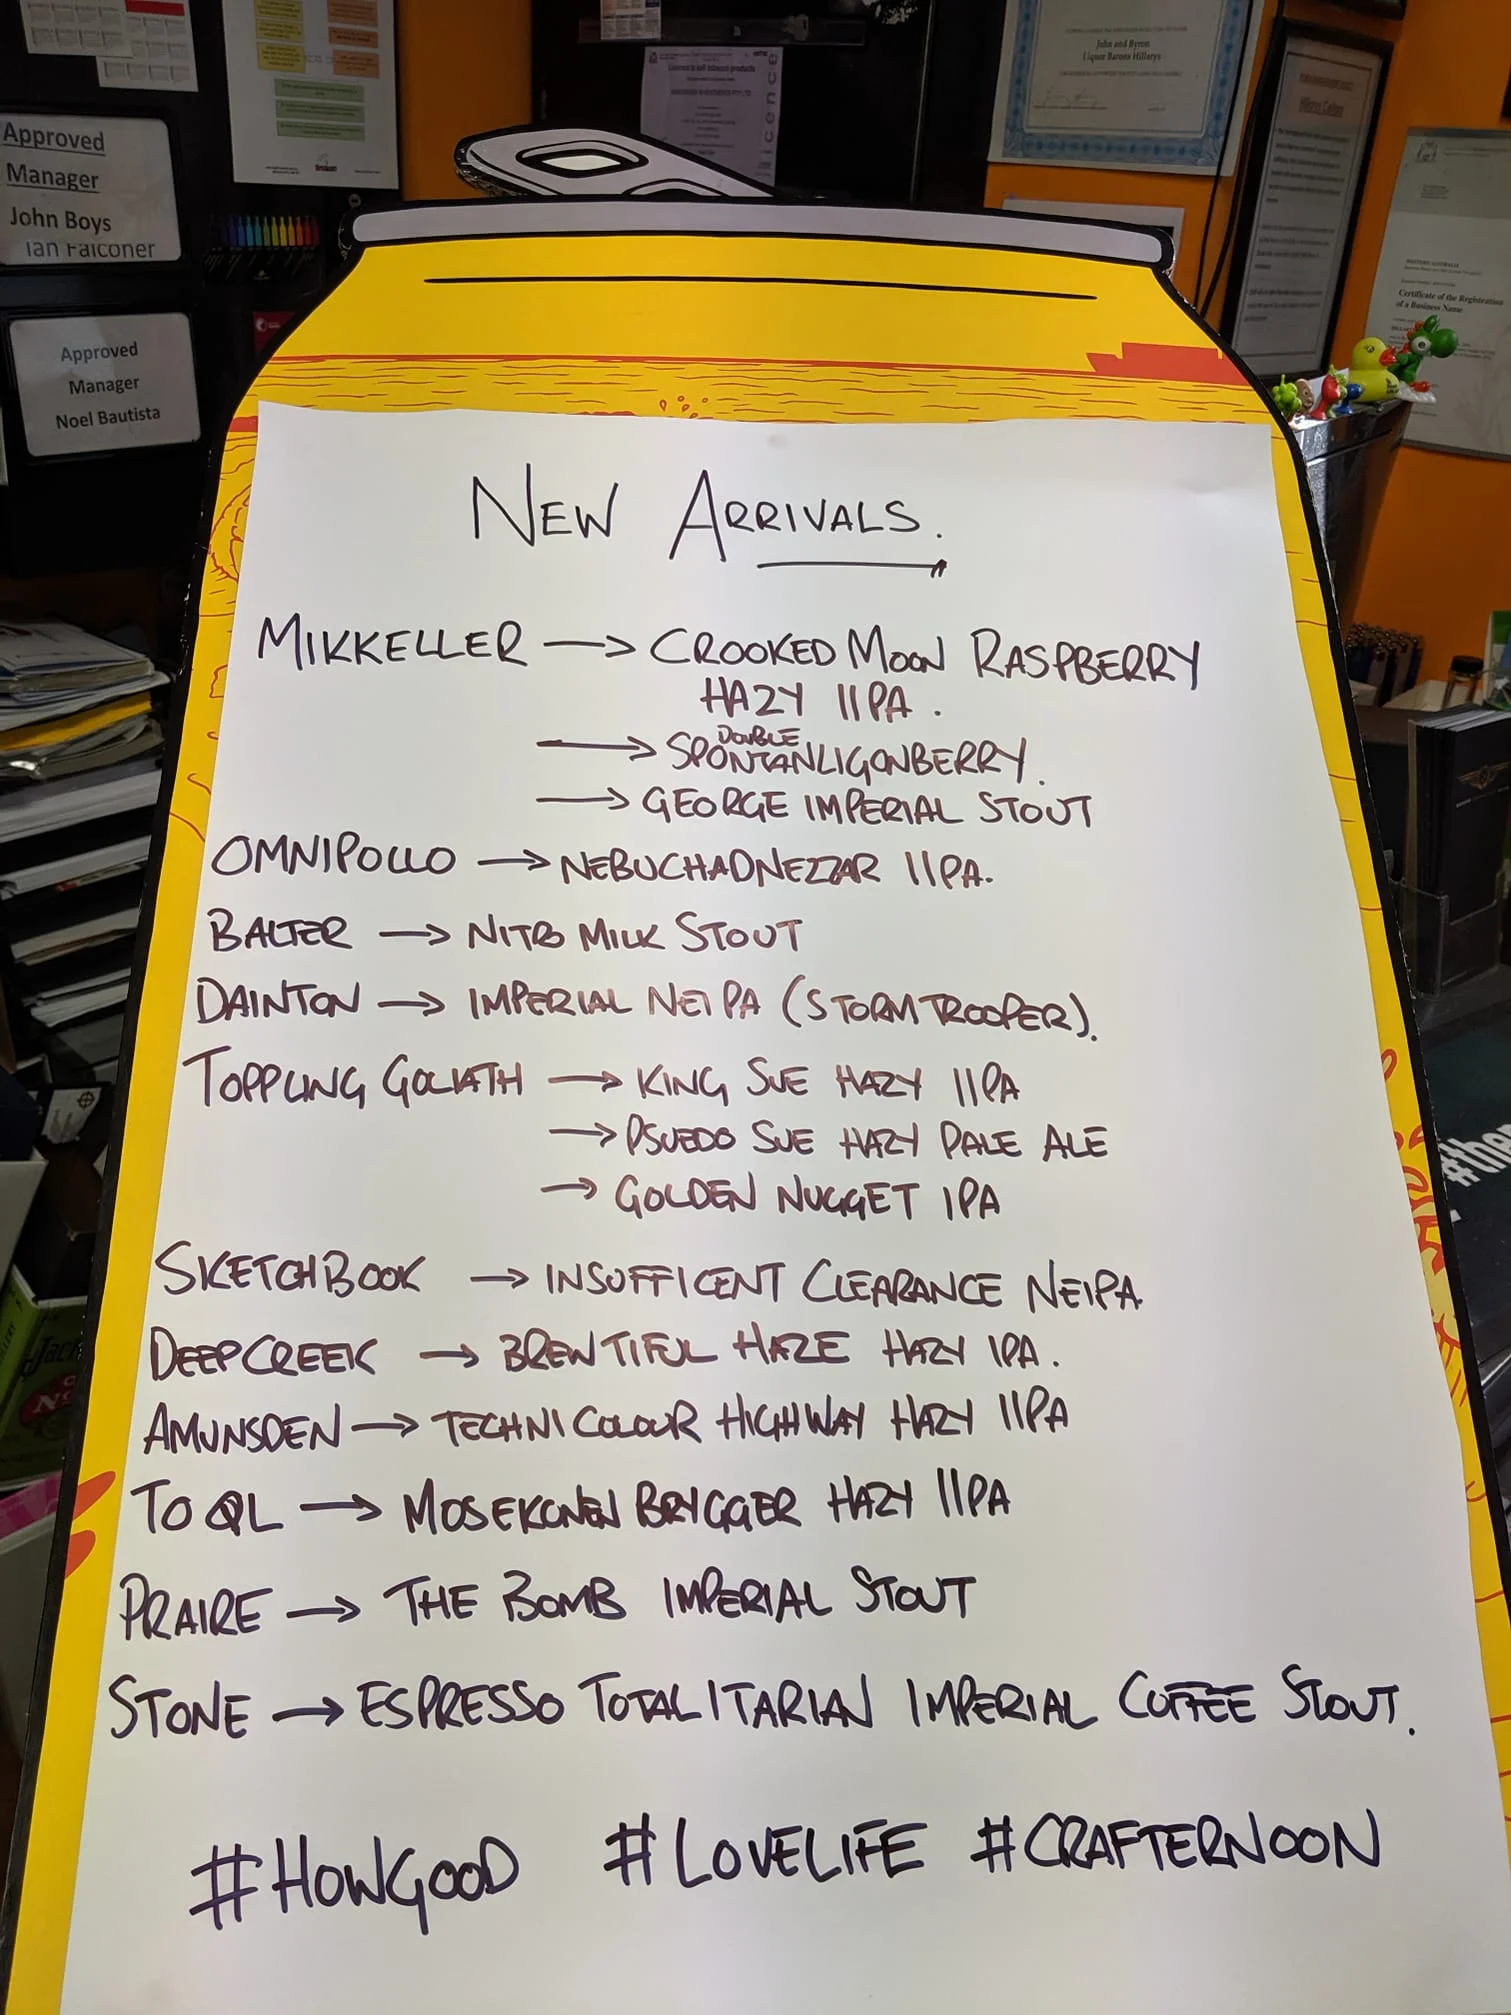 Approved
Manager
John Boys
Ian Falconer
Approved
Manager
Noel Bautista
John and Byron
Liquor Barons Hillarys
Licence to sell tobacco products
WESTERN AUSTRALIA
Certificate of the Registration
of a Business Name
NEW ARRIVALS.
MIKKELLER → CROOKED MOON RASPBERRY
HAZY IIPA.
DOUBLE
→ SPONTANLIGONBERRY.
→ GEORGE IMPERIAL STOUT
OMNIPOLLO → NEBUCHADNEZZAR IIPA.
BALTER → NITRO MILK STOUT
DAINTON → IMPERIAL NEIPA (STORMTROOPER).
TOPPLING GOLIATH → KING SUE HAZY IIPA
→ PSUEDO SUE HAZY PALE ALE
→ GOLDEN NUGGET IPA
SKETCHBOOK → INSUFFICENT CLEARANCE NEIPA
DEEPCREEK → BREWTIFUL HAZE HAZY IPA.
AMUNSDEN → TECHNICOLOUR HIGHWAY HAZY IIPA
TO QL → MOSEKONEN BRYGGER HAZY IIPA
PRAIRE → THE BOMB IMPERIAL STOUT
STONE → ESPRESSO TOTALITARIAN IMPERIAL COFFEE STOUT.
#HOWGOOD #LOVELIFE #CRAFTERNOON